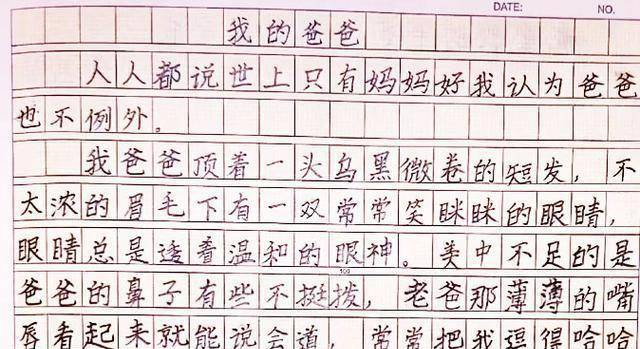 DATE: NO.
我的爸爸
人人都说世上只有妈妈好我认为爸爸
也不例外。
我爸爸顶着一头乌黑微卷的短发，不
太浓的眉毛下有一双常常笑眯眯的眼睛，
眼睛总是透着温和的眼神。美中不足的是
100
爸爸的鼻子有些不挺拨，老爸那薄薄的嘴
唇看起来就能说会道，常常把我逗得哈哈